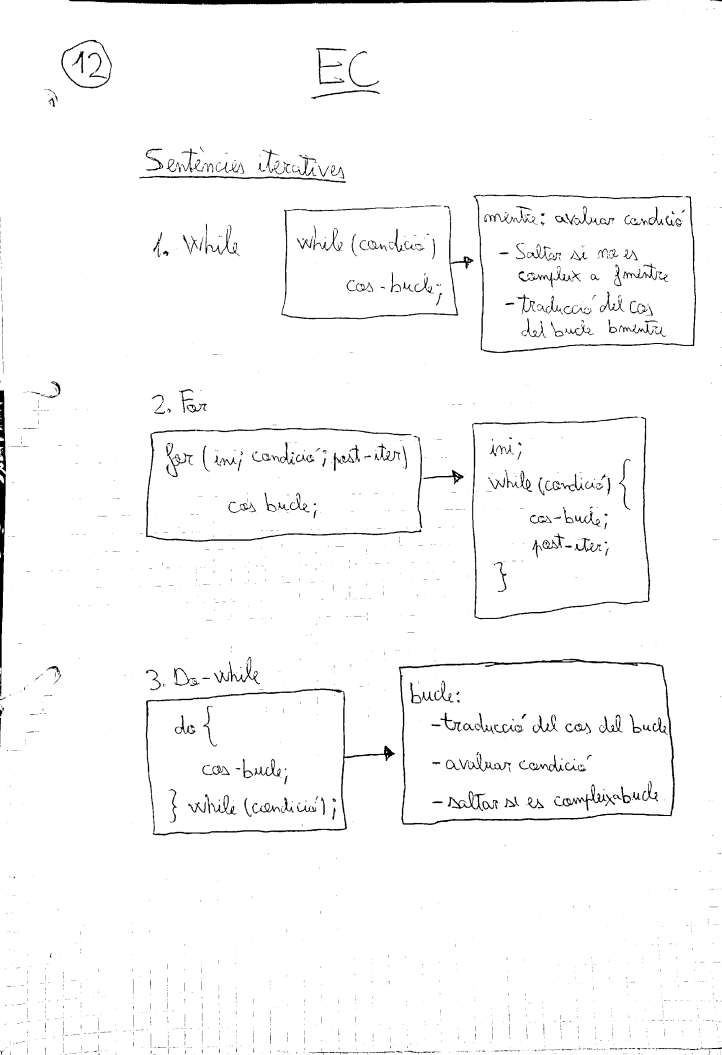 12
EC
Sentències iteratives
1. While
while (condició)
cos-bucle;
mentre: avaluar condició
- Saltar si no es
compleix a fmentre
- traducció del cos
del bucle bmentre
2. For
for (ini; condició; post-iter)
cos bucle;
ini;
while (condició) {
cos-bucle;
post-iter;
}
3. Do-while
do {
cos-bucle;
} while (condició);
bucle:
- traducció del cos del bucle
- avaluar condició
- saltar si es compleix a bucle